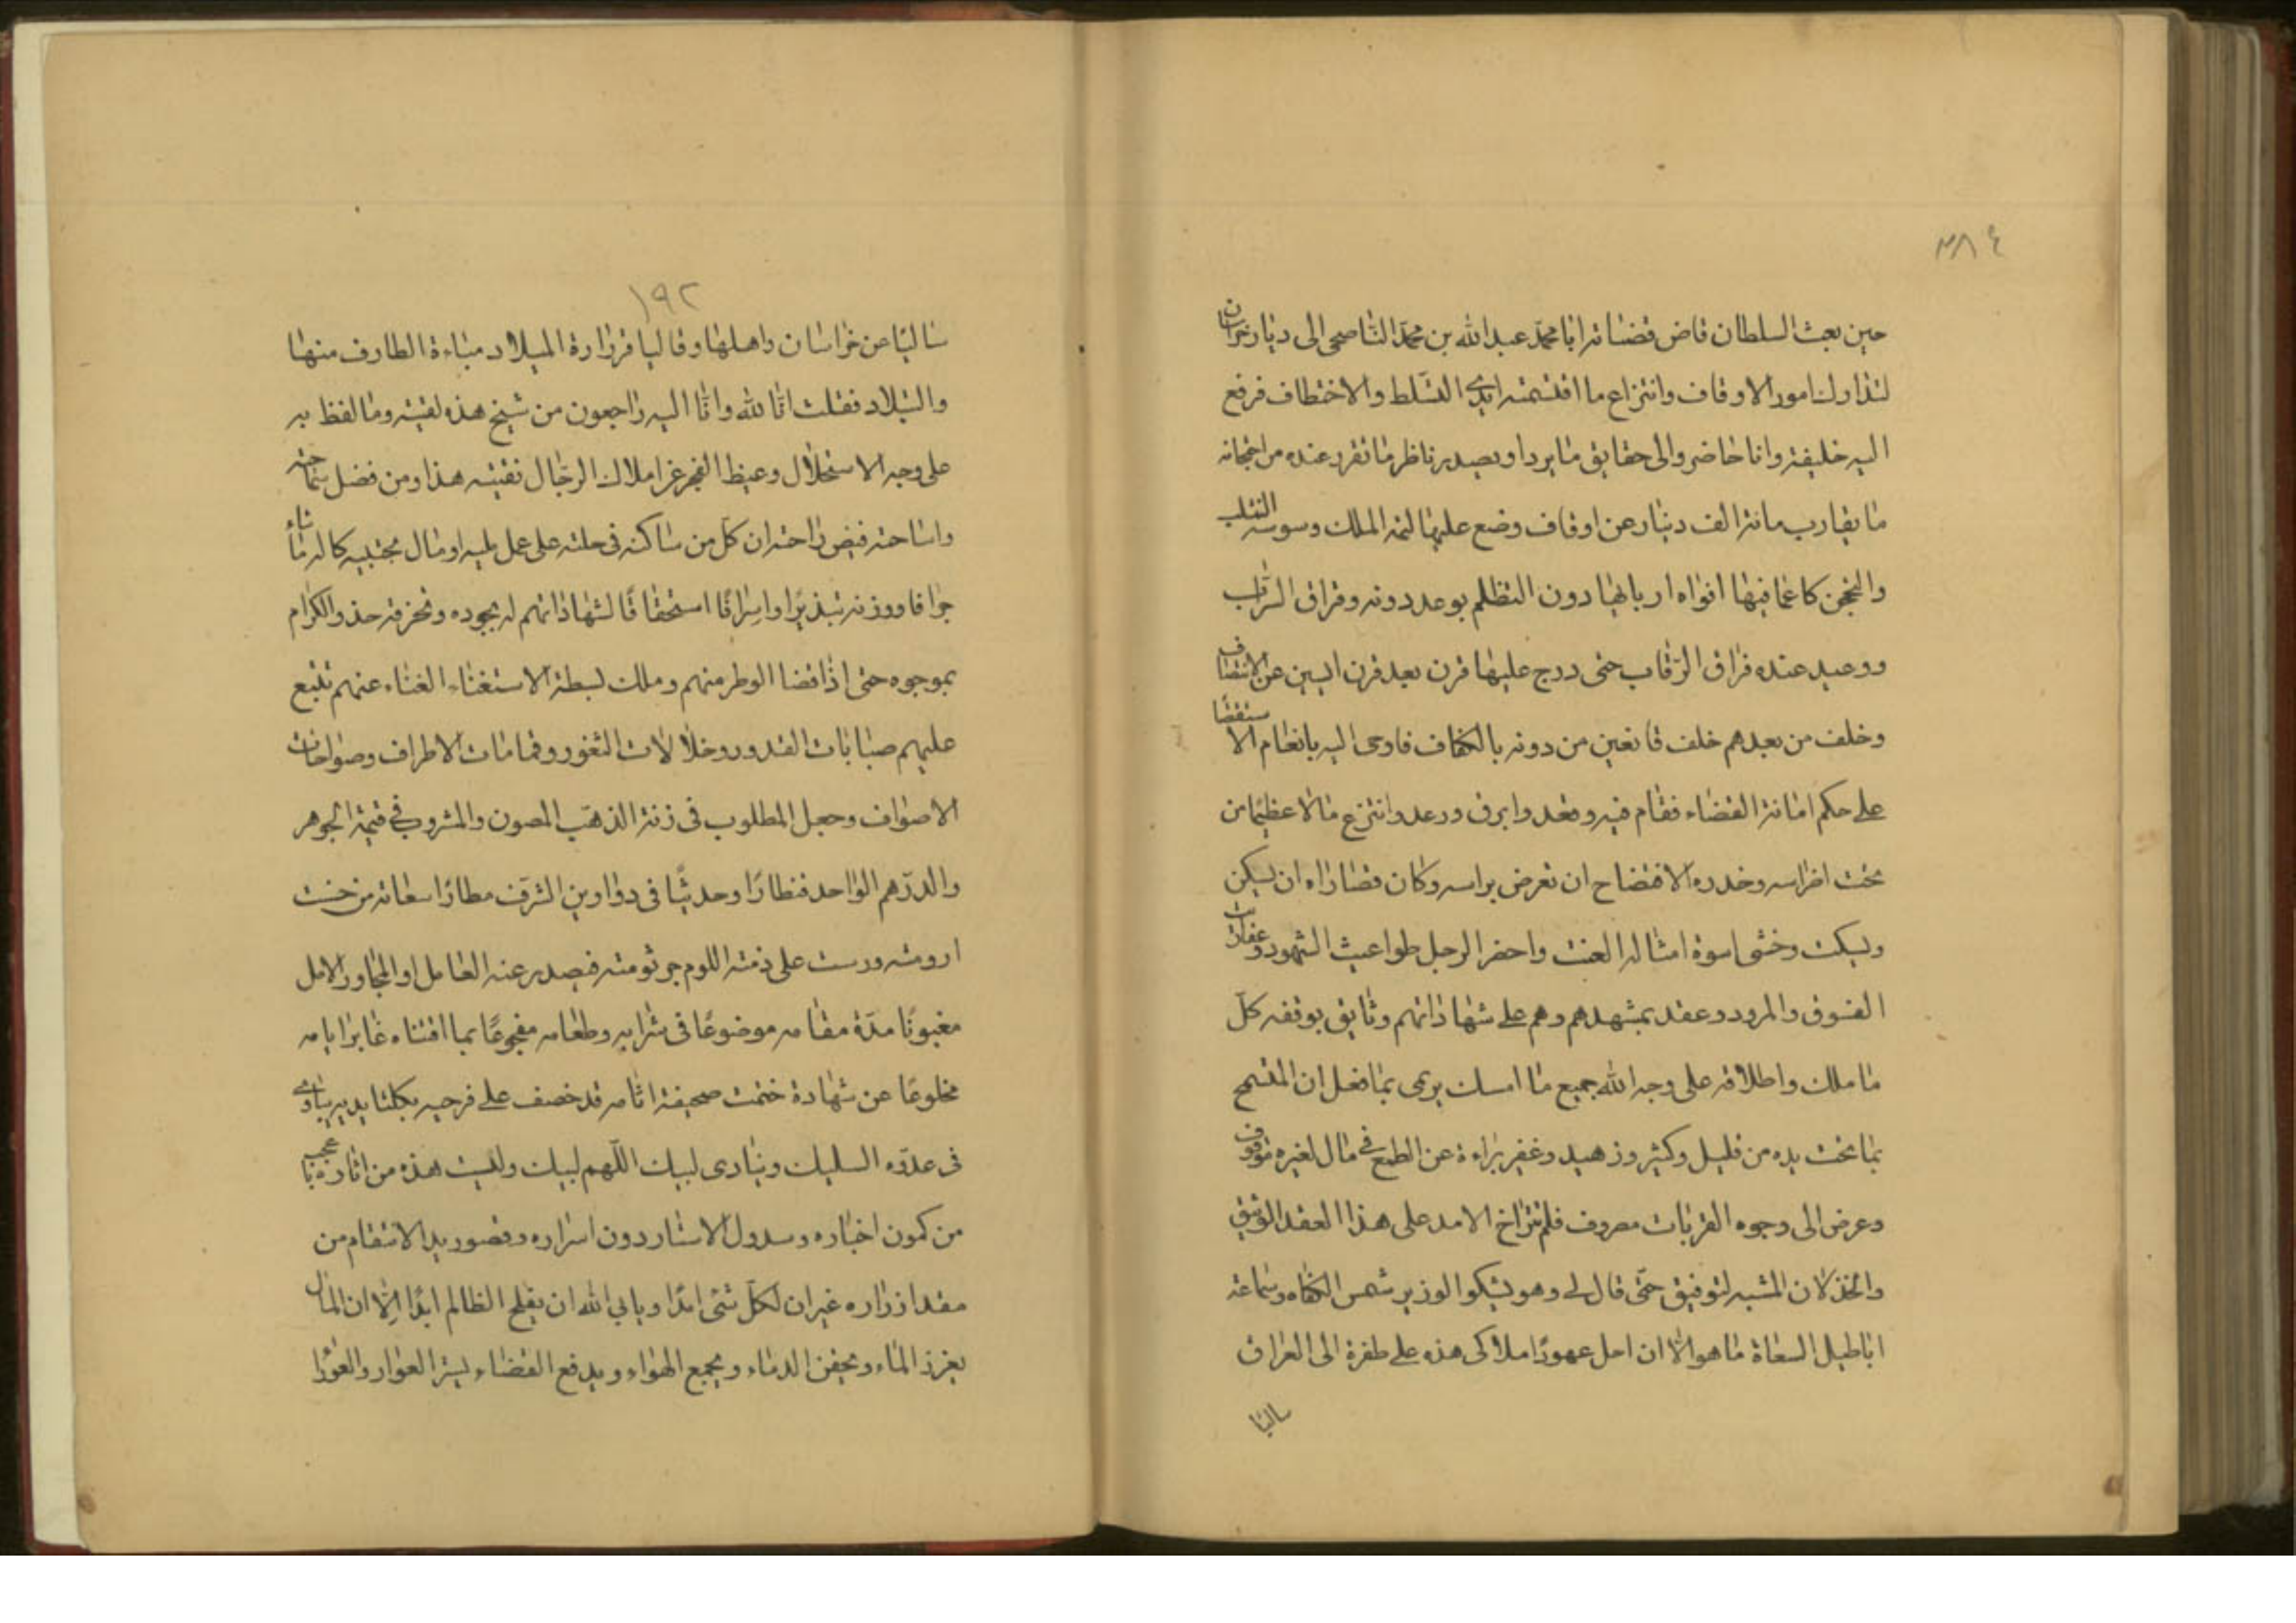 ٣٨٤
حين بعث السلطان قاضى قضاته ابا محمد عبد الله بن محمد الناصحى الى ديار خراسان
لتداول امور الاوقاف وانتزاع ما اقتسمته ايدى التسلط والاختطاف فرفع
اليه خليفته وانا حاضر والى حقايق ما يرد او يصدر ناظر ما تقرر عنده من احتجانه
ما يقارب مائة الف دينار عن اوقاف وضع عليها لتمه الملك وسوسه
والتحجن كاعما فيها افواه اربابها دون التظلم بوعد دونه وفراق
ووعيد عنده فراق الرقاب حتى درج عليها قرن بعد قرن ايسين عن الانتصاف
وخلف من بعدهم خلف قانعين من دونه بالكفاف فاوعى اليه بانعام الاستقضا
على حكم امانة القضاء فقام فيه وقعد وابرق ورعد وانتزع مالا عظيما من
تحت اضراسه وخدره الافتضاح ان تعرض براسه وكان قصاراه ان يسكن
ويسكت وخشى اسوة امثاله العنت واحضر الرجل طواغيث الشهود وعفاريت
الفسوق والمرود وعقد بمشهدهم وهم على شهاداتهم وثايق بوقفه كل
ما ملك واطلاقه على وجه الله جميع ما امسك يرى بما فعل ان المتسمح
بما تحت يده من قليل وكثير وزهيد وغفير براءة عن الطمع فى مال لغيره موقوف
وعرض الى وجوه القربات مصروف فلم تتراخ الامد على هذا العقد الوثيق
والخذلان المشبه لتوفيق حتى قال لى وهو يشكو الوزير شمس الكفاه وسماعه
اباطيل السعاة ما هو الا ان احل عهود املاكى هذه على طفرة الى العراق
ساليا
١٩٢
ساليا عن خراسان واهلها وقاليا قرارة الميلاد مباءة الطارف منها
والتلاد فقلت انا لله وانا اليه راجعون من شيخ هذه لقيته وما لفظ به
على وجه الاستحلال وعيظ الفجر غرا ملاك الرجال نقيته هذا ومن فضل سماحته
واساحته فيض راحته ان كل من ساكنه فى حلته على عمل يليه او مال يجتبيه كاله ماشاء
جزافا ووزنه تبذيرا واسرافا استحقاقا لشهاداتهم له بجوده وتحزفه حذو الكرام
بموجوه حتى اذا قضا الوطر منهم وملك لبسطة الاستغناء الغناء عنهم تتبع
عليهم صبابات القدور وخلالات الثغور وقمامات الاطراف وصواحات
الاصواف وجعل المطلوب فى زنة الذهب المصون والمشروب فى قيمة الجوهر
والدرهم الواحد قنطارا وحديثا فى دواوين الشرف مطارا سعاته من خبثت
ارومته ورست على ذمته اللوم جرثومته فيصدر عنه العامل او المجاور الامل
مغبونا مدة مقامه موضوعا فى شرابه وطعامه مفجوعا بما اقتناه غابر ايامه
مخلوعا عن شهادة ختمت صحيفة اثامه قد خصف على فرجيه بكلتا يديه يبادى
فى عدوه السليك وينادى لبيك اللهم لبيك وليست هذه من اثاره باعجب
من كمون اخباره وسدول الاستار دون اسراره وقصور يد الانتقام من
مقدار زاره غير ان لكل شئ امدا ويابى الله ان يفلح الظالم ابدا الا ان المال
يغزز الماء ويحقن الدماء ويجمع الهواء ويدفع القضاء يستر العوار والعورا